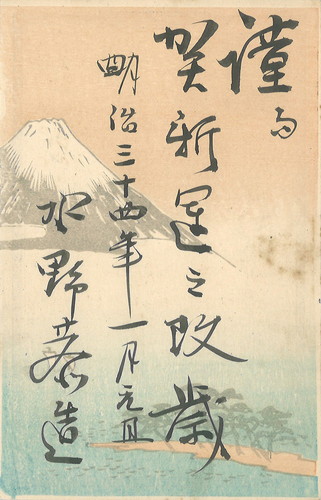 謹而
賀新運之改歳
明治三十四年一月元旦
水野恭造